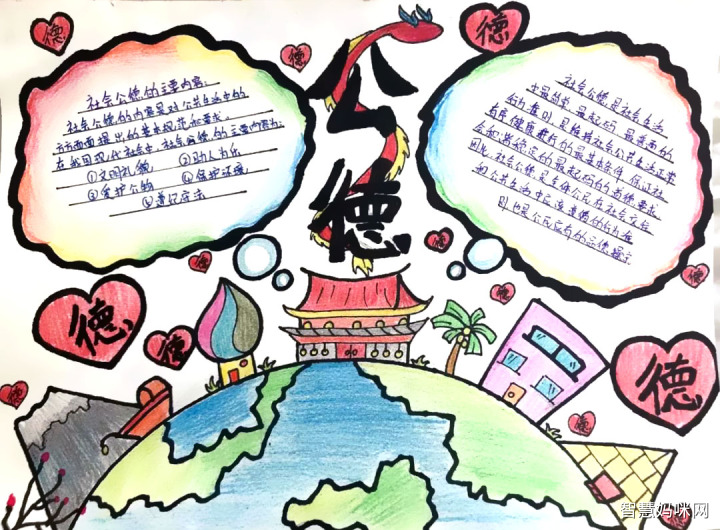 公德
社会公德的主要内容:
社会公德的内容是对公共生活中的
方方面面提出的基本规范和要求。
在我国现代社会中,社会公德的主要内容为:
①文明礼貌 ②助人为乐
③爱护公物 ④保护环境
⑤遵纪守法
社会公德是社会生活
中最简单、最起码、最普通的
行为准则,是维持社会公共生活正常、
有序、健康进行的最基本条件。
因此,社会公德是全体公民在社会交往
和公共生活中应该遵循的行为准
则,也是
德
德
德
德
德
德
德
德
德
德
德
智慧妈咪网